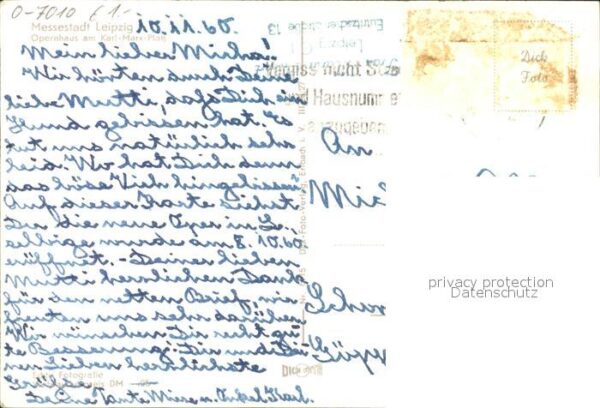 O-7010 £ 1.-
Messestadt Leipzig
Opernhaus am Karl-Marx-Platz
10.11.60.
Mein lieber Micha!
Wir hörten durch Deine
liebe Mutti, daß Dich ein
Hund gebissen hat. Es
tut uns natürlich sehr
leid. Wo hat Dich denn
das böse Vieh hingebissen?
Auf dieser Karte siehst
Du die neue Oper in L.,
selbige wurde am 8.10.60
eröffnet. - Deiner lieben
Mutti herzlichen Dank
für den netten Brief, wir
freuten uns sehr darüber.
Wir wünschen Dir recht gu-
te Besserung. Dir und Dei-
nen Lieben herzlichste
Grüße
Deine Tante Miese u. Onkel Karl.
Echte Fotografie
DM
Eutritzscher Straße 13
Leipzig
Vergiss nicht
Hausnummer
anzugeben
Dick
Foto
An
privacy protection
Datenschutz
Dick Foto